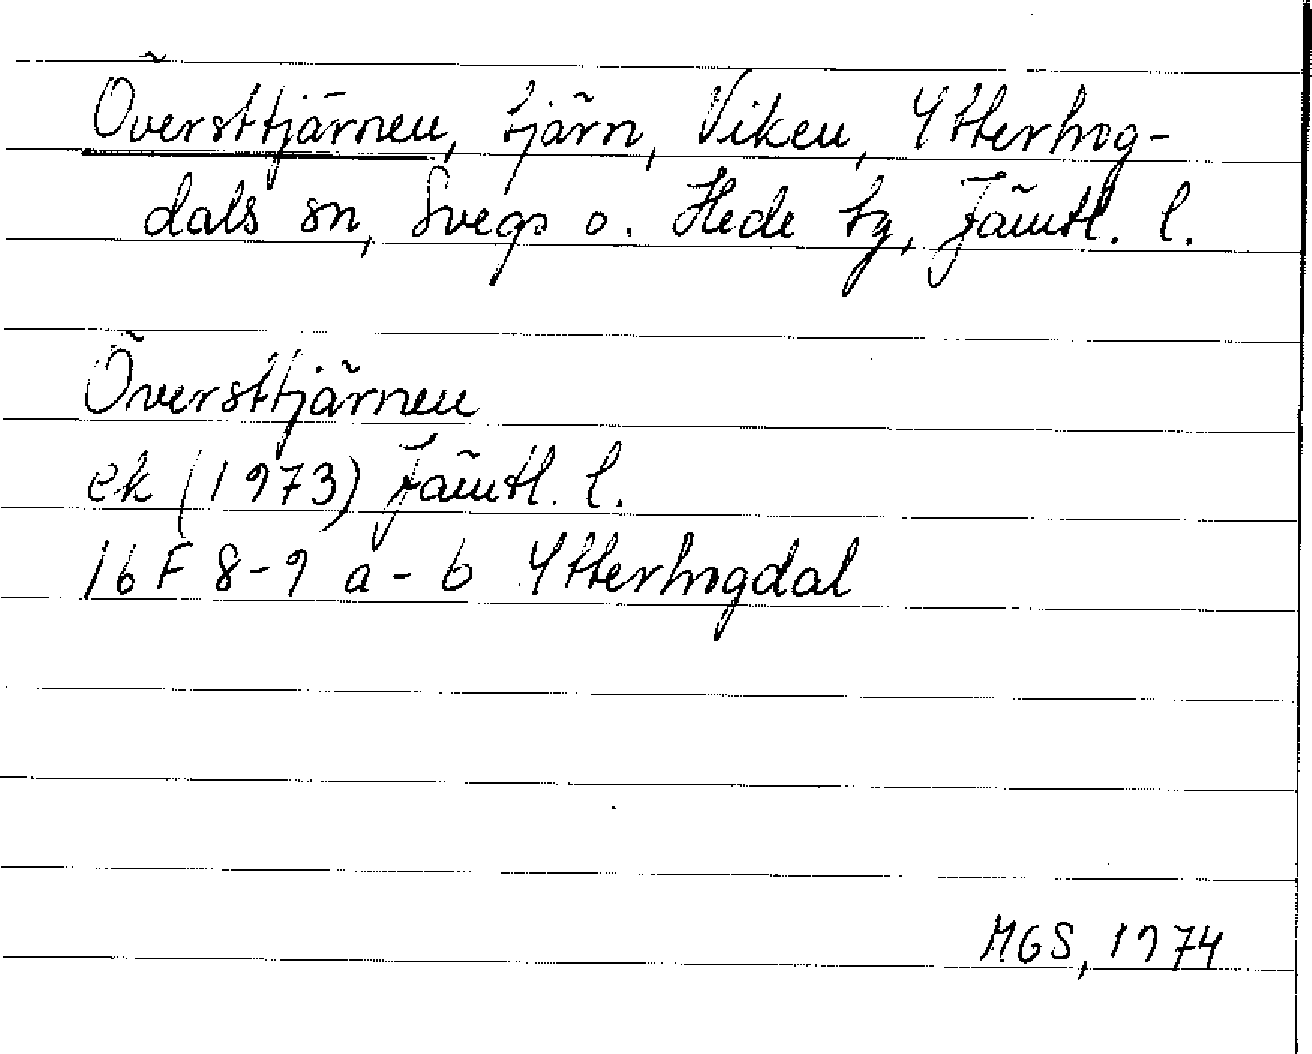 Översttjärnen, tjärn, Viken, Ytterhog-
dals sn, Svegs o. Hede tg, Jämtl. l.
Översttjärnen
ek (1973) Jämtl. l.
16 F 8-9 a-b Ytterhogdal
MGS, 1974